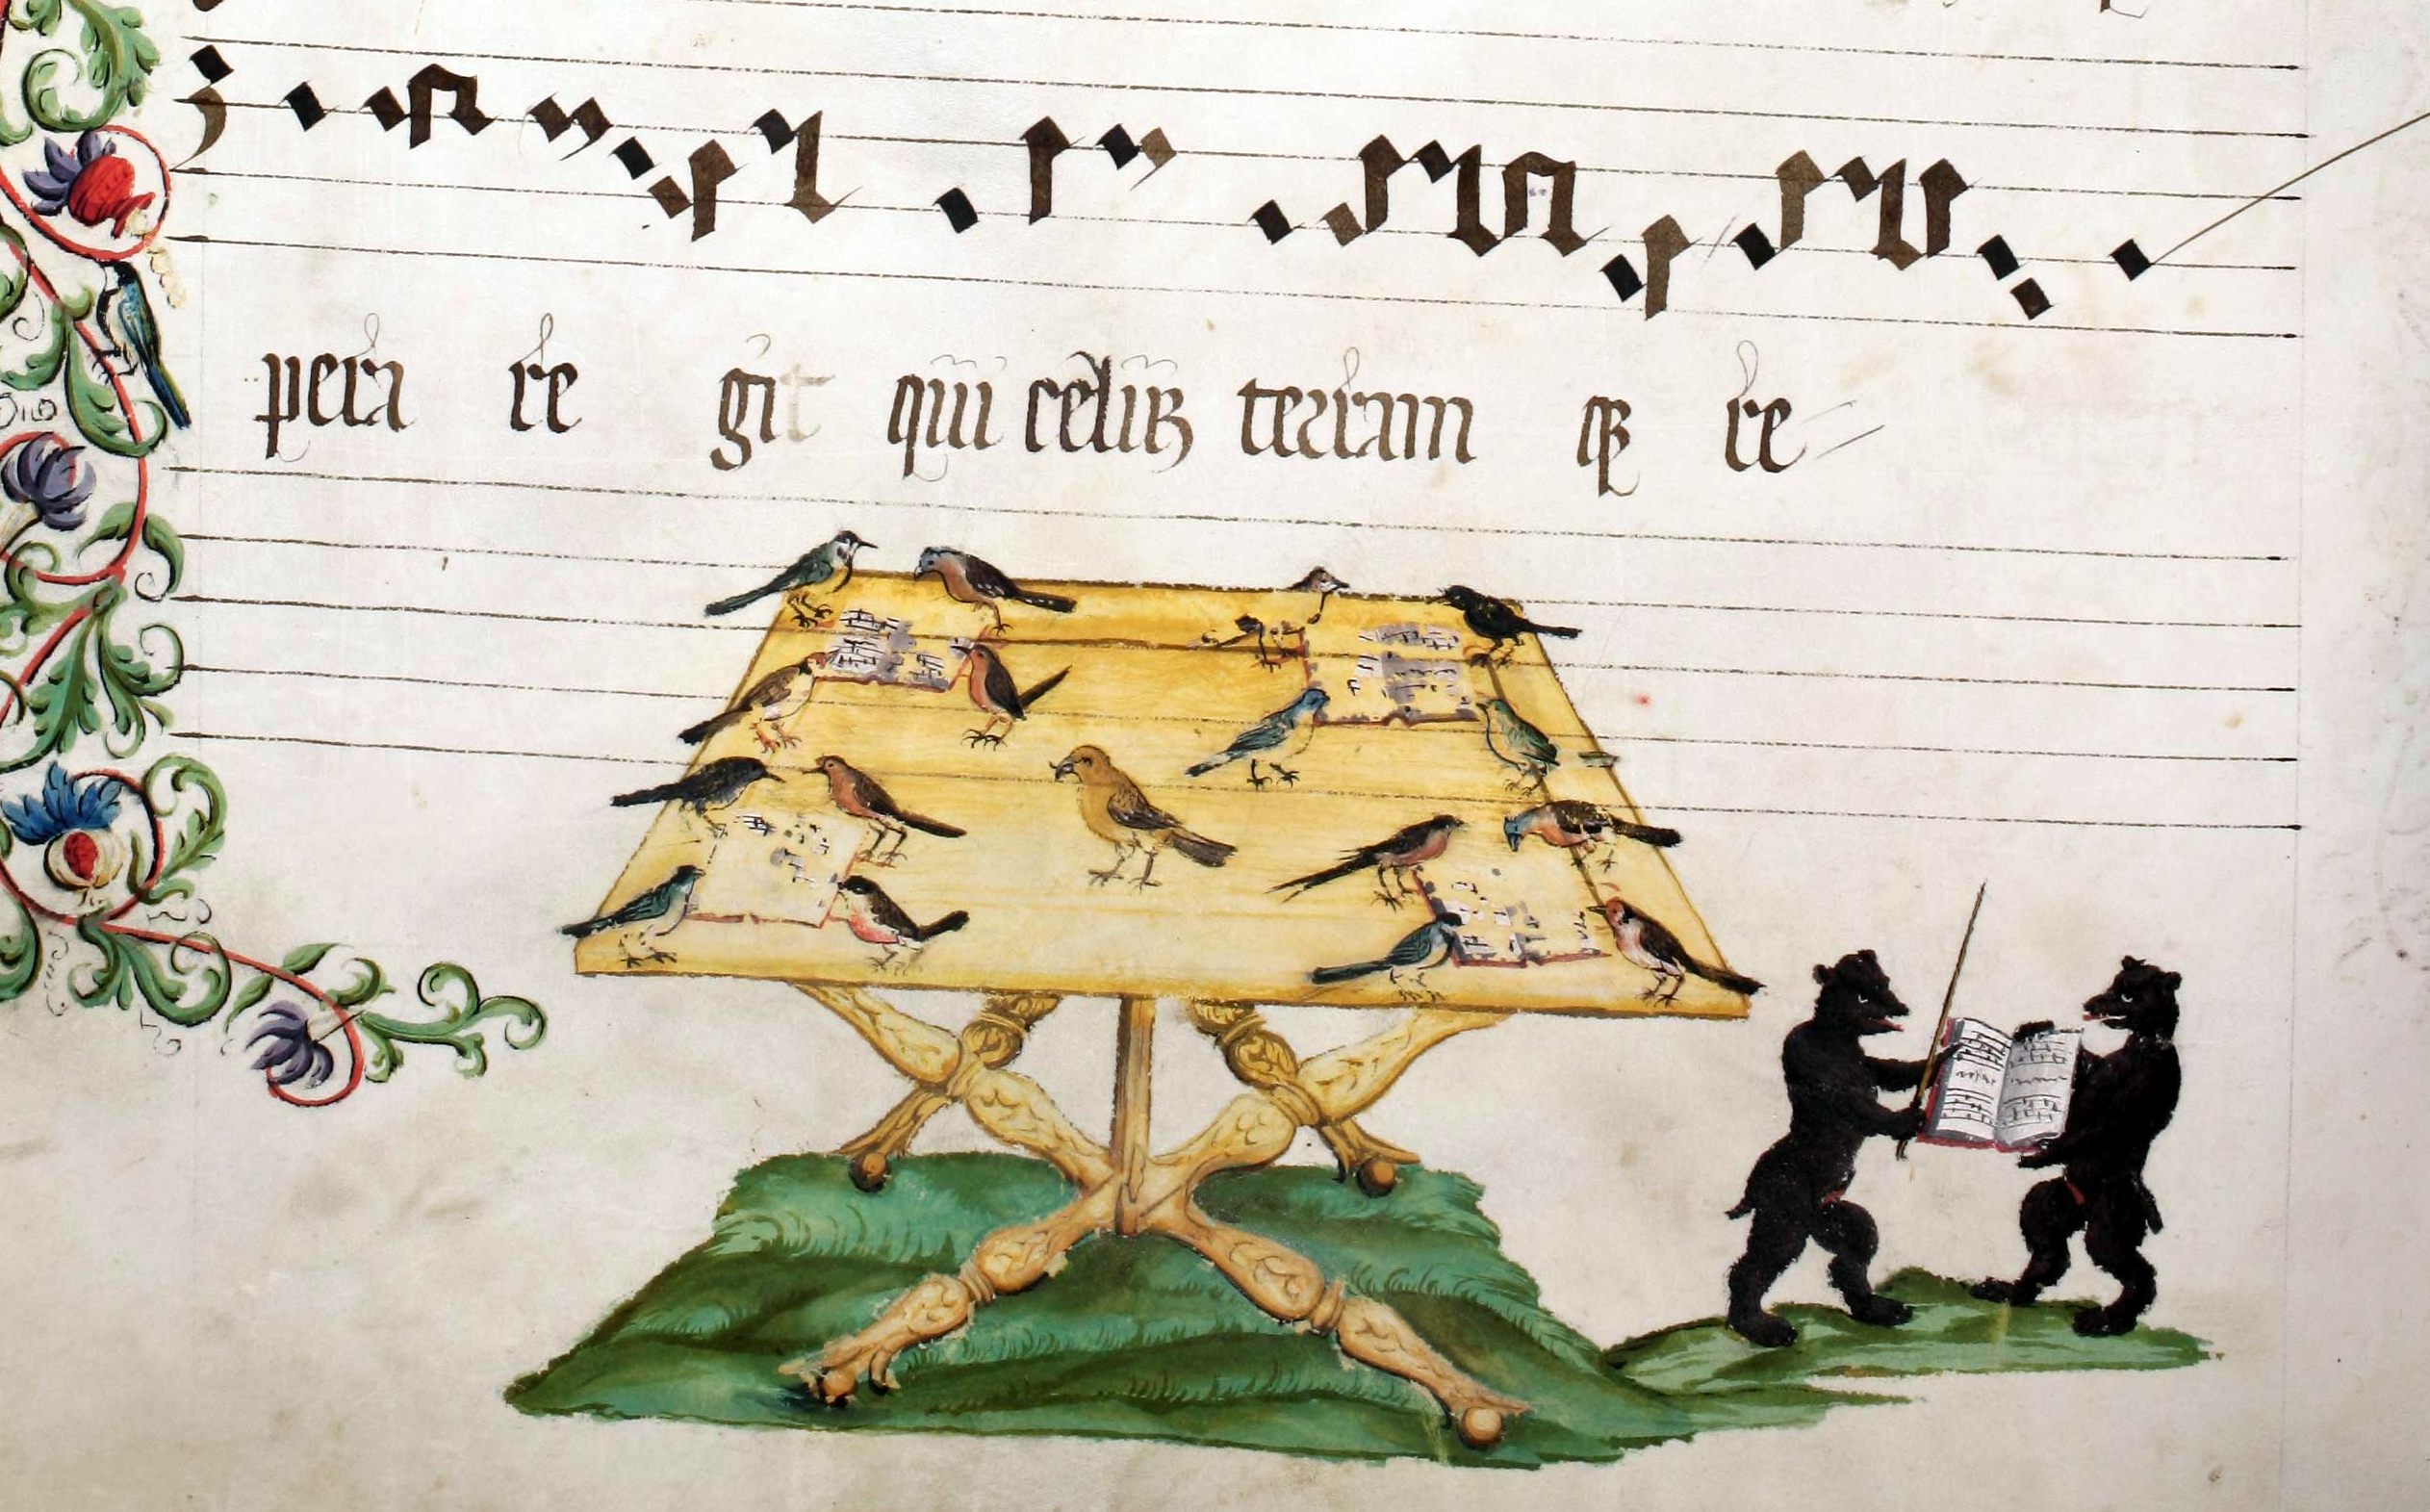 pera re git qui celus terram qƺ re-